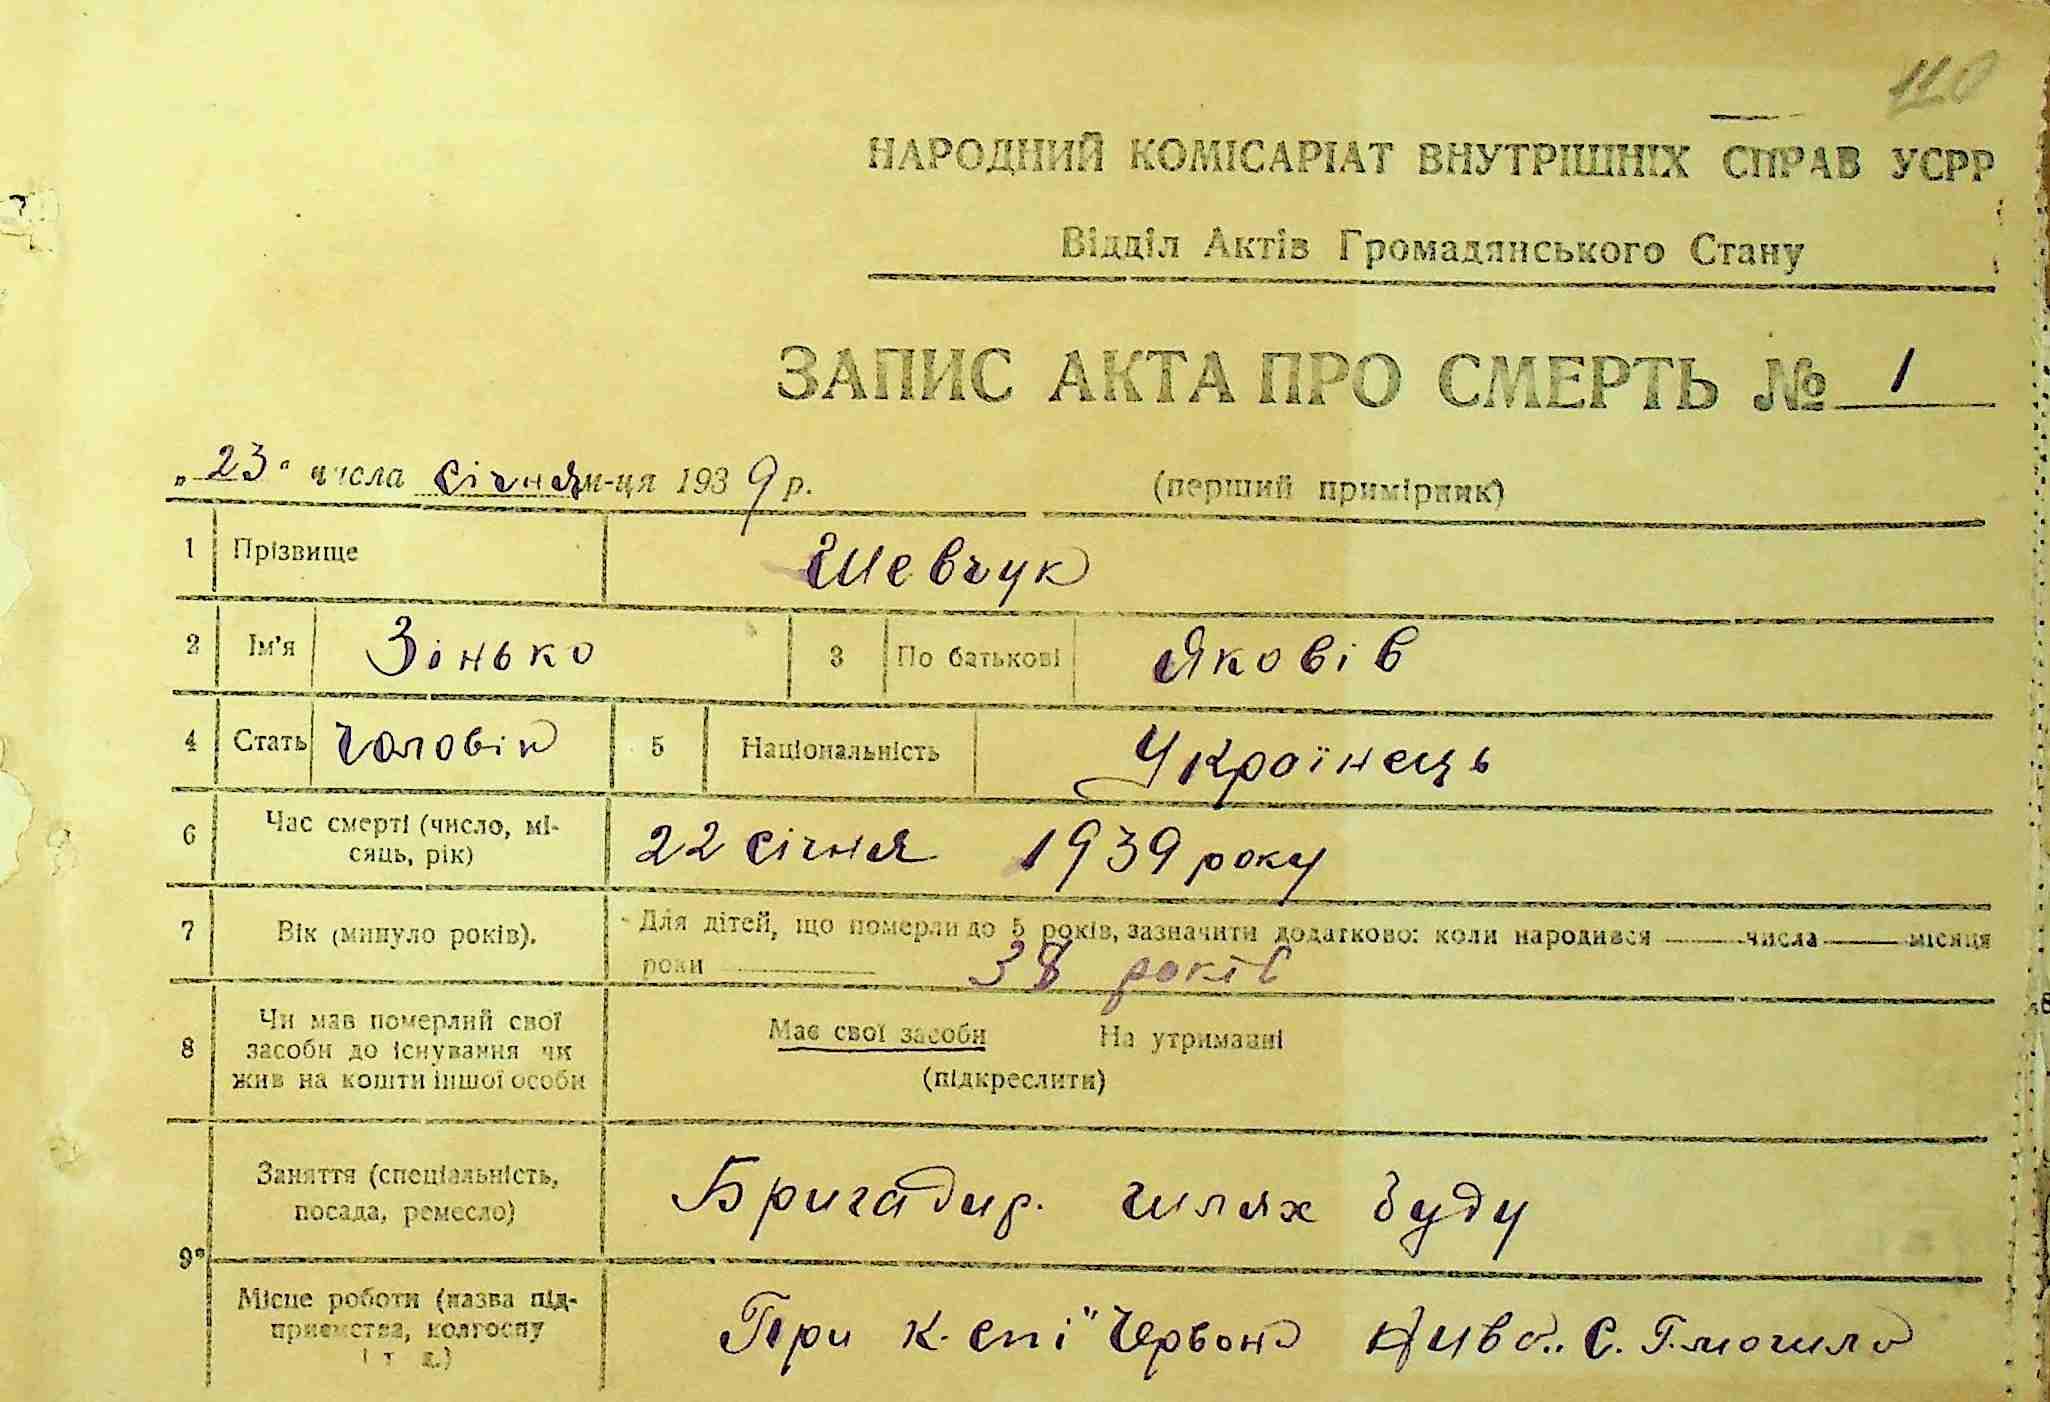 110
НАРОДНИЙ КОМІСАРІАТ ВНУТРІШНІХ СПРАВ УСРР
Відділ Актів Громадянського Стану
ЗАПИС АКТА ПРО СМЕРТЬ № 1
„23" числа січня м-ця 1939 р. (перший примірник)
1 Прізвище Шевчук
2 Ім'я Зінько 3 По батькові Яковів
4 Стать чоловік 5 Національність Українець
6 Час смерті (число, мі-
сяць, рік) 22 січня 1939 року
7 Вік (минуло років). Для дітей, що померли до 5 років, зазначити додатково: коли народився — числа — місяця
роки 38 років
8 Чи мав померлий свої
засоби до існування чи
жив на кошти іншої особи
Має свої засоби На утриманні
(підкреслити)
9*
Заняття (спеціальність,
посада, ремесло) Бригадир. шлях буду
Місце роботи (назва під-
приємства, колгоспу
і т. д.) При к-спі "Червона Нива" с. Г.могила